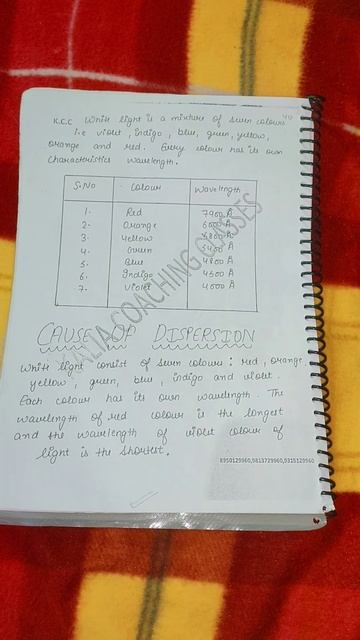 K.C.C White light is a mixture of seven colours
i.e violet, indigo, blue, green, yellow,
orange and red. Every colour has its own
characteristics wavelength.
S.No Colour Wavelength
1. Red 7900 Å
2. Orange 6000 Å
3. Yellow 5800 Å
4. Green Å
5. Blue 4800 Å
6. Indigo 4500 Å
7. Violet 4000 Å
KALIA COACHING CLASSES
CAUSE OF DISPERSION
White light consist of seven colours : red, orange,
yellow, green, blue, indigo and violet.
Each colour has its own wavelength. The
wavelength of red colour is the longest
and the wavelength of violet colour of
light is the shortest.
8950129960,9813729960,9315129960